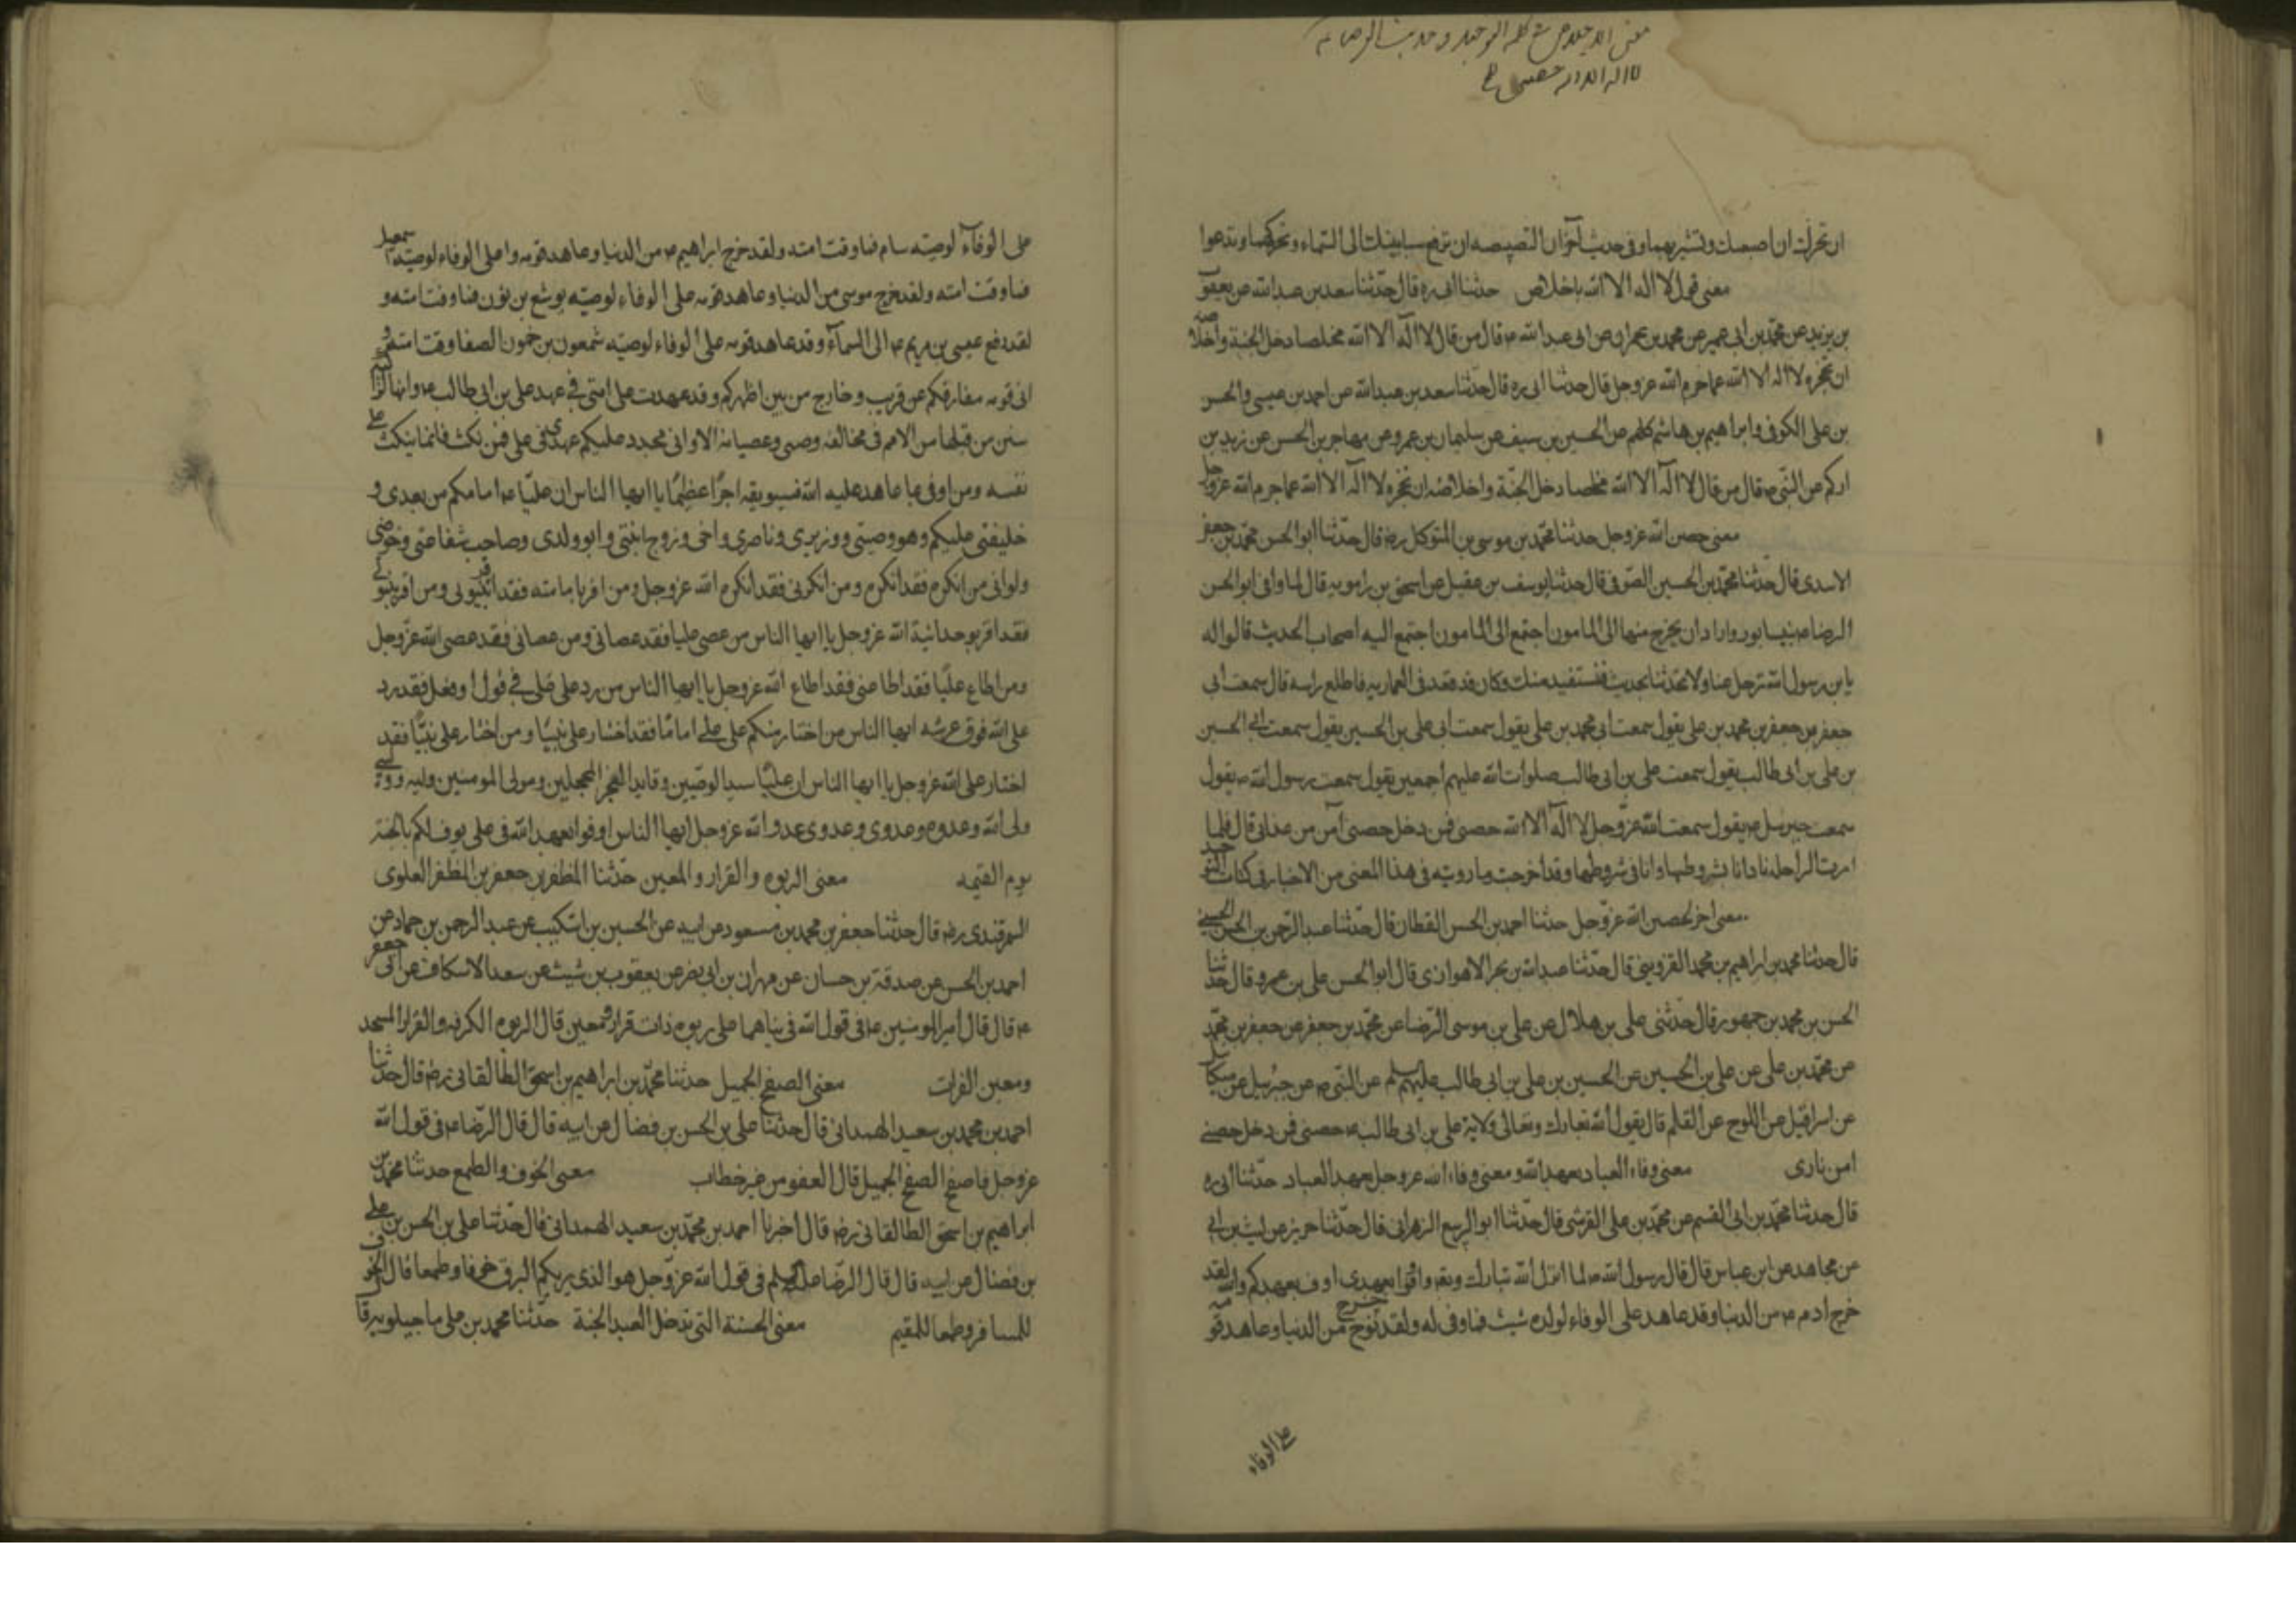 معنى الاخلاص في كلمة التوحيد وحديث الرضا ع
لا اله الا الله حصنى
ان تحرك ان اصبعك وتشير بهما وفى حديث آخر ان البصبصه ان ترفع سبابتيك الى السماء وتحركهما وتدعوا
معنى قول لا اله الا الله باخلاص حدثنا ابى ره قال حدّثنا سعد بن عبد الله عن يعقوب
بن يزيد عن محمّد بن ابى عمير عن محمد بن حمران عن ابى عبد الله ع قال من قال لا اله الا الله مخلصا دخل الجنة واخلاصه
ان تحجزه لا اله الا الله عما حرم الله عز وجل قال حدثنا ابى ره قال حدّثنا سعد بن عبد الله عن احمد بن عيسى والحسن
بن على الكوفى وابراهيم بن هاشم كلهم عن الحسين بن سيف عن سليمان بن عمرو عن مهاجر بن الحسن عن زيد بن
اركم عن النبى ص قال من قال لا اله الا الله مخلصا دخل الجنّة واخلاصه ان تحجزه لا اله الا الله عما حرم الله عزوجل
معنى حصن الله عز وجل حدثنا محمّد بن موسى بن المتوكل رض قال حدّثنا ابو الحسن محمّد بن جعفر
الاسدى قال حدّثنا محمّد بن الحسين الصّوفى قال حدثنا يوسف بن عقيل عن اسحق بن راهويه قال لما وافى ابو الحسن
الرضا ع نيسابور واراد ان يخرج منها الى المامون اجتمع الى المامون اجتمع اليه اصحاب الحديث قالوا له
يابن رسول الله ترحل عنا ولا تحدّثنا بحديث فنستفيد منك وكان قد قعد فى العماريه فاطلع راسه قال سمعت ابى
جعفر بن جعفر بن محمد بن على يقول سمعت ابى محمد بن على يقول سمعت ابى على بن الحسين يقول سمعت ابى الحسين
بن على بن ابى طالب يقول سمعت على بن ابى طالب صلوات الله عليهم اجمعين يقول سمعت رسول الله ص يقول
سمعت جبرئيل ع يقول سمعت الله عزّ وجل لا اله الا الله حصنى فمن دخل حصنى آمن من عذابى قال فلما
مرت الراحله نادانا بشروطها وانا فى شروطها وقد اخرجت ما رويته فى هذا المعنى من الاخبار فى كتاب التوحيد
معنى اخر لحصن الله عزّ وجل حدثنا احمد بن الحسن القطان قال حدّثنا عبد الرّحمن بن الحسن الحسينى
قال حدثنا محمد بن ابراهيم بن محمد القزوينى قال حدّثنا عبد الله بن بحر الاهوازى قال ابو الحسن على بن عمرو قال حدثنا
الحسن بن محمد بن جمهور قال حدّثنى على بن هلال عن على بن موسى الرّضا عن محمّد بن جعفر عن جعفر بن محمّد
عن محمّد بن على عن على بن الحسين عن الحسين بن على بن ابى طالب عليهم السلام عن النّبى ص عن جبرئيل عن ميكائيل
عن اسرافيل عن اللوح عن القلم قال يقول الله تبارك وتعالى ولاية على بن ابى طالب ع حصنى فمن دخل حصنى
امن نارى معنى وفاء العباد بعهد الله ومعنى وفاء الله عز وجل بعهد العباد حدّثنا ابى ره
قال حدثنا محمّد بن ابى القسم عن محمّد بن على القرشى قال حدّثنا ابو الربيع الزهرانى قال حدّثنا حريز عن ليث بن ابى
عن مجاهد عن ابن عباس قال قال رسول الله ص لما انزل الله تبارك وتعه واوفوا بعهدى اوف بعهدكم والله لقد
خرج ادم ع من الدنيا وقد عاهد على الوفاء لولده شيث فما وفى له ولقد خرج نوح من الدنيا وعاهد قومه
على الوفاء
على الوفاء لوصيّه سام فما وفت امته ولقد خرج ابراهيم ع من الدنيا وعاهد قومه واعلى الوفاء لوصيّه اسمعيل
فما وفت امته ولقد خرج موسى من الدنيا وعاهد قومه على الوفاء لوصيّه يوشع بن نون فما وفت امته و
لقد رفع عيسى بن مريم ع الى السمآء وقد عاهد قومه على الوفاء لوصيّه شمعون بن حمون الصفا وفت امته و
انى قومه مفارقكم عن قريب وخارج من بين اظهركم وقد عهدت على امتى فى عهد على بن ابى طالب ع وانها لراكبة
سنن من قبلها من الامم فى مخالفه وصى وعصيانه الا وانى مجدد عليكم عهدى فى على فمن نكث فانما ينكث على
نفسه ومن اوفى بما عاهد عليه الله فسيوتيه اجرًا عظيمًا يا ايها الناس ان عليّا ع امامكم من بعدى و
خليفتى عليكم وهو وصيّى ووزيرى وناصرى واخى وزوج ابنتى وابو ولدى وصاحب شفاعتى وحوضى
ولوائى من انكره فقد انكره ومن انكرنى فقد انكره الله عز وجل ومن اقر بامامته فقد اقر بنبوتى ومن اقر بنبوتى
فقد اقر بوحدانية الله عز وجل يا ايها الناس من عصى عليا فقد عصانى ومن عصانى فقد عصى الله عزّ وجل
ومن اطاع عليًا فقد اطاعنى فقد اطاع الله عز وجل يا ايها الناس من رد على على فى قول او فعل فقد رد
على الله فوق عرشه ايها الناس من اختار منكم على على امامًا فقد اختار على نبيّا ومن اختار على نبيّا فقد
اختار على الله عز وجل يا ايها الناس ان عليًا سيد الوصيّين وقايد الغر المحجلين ومولى المومنين وليه
ولى الله وعدوه عدوى وعدوى عدو الله عز وجل ايها الناس اوفوا بعهد الله فى على يوف لكم بالجنة
يوم القيمه معنى الربوه والقرار والمعين حدّثنا المظفر بن جعفر بن المظفر العلوى
السمرقندى رض قال حدثنا جعفر بن محمد بن مسعود عن ابيه عن الحسين بن اشكيب عن عبد الرحمن بن حماد عن
احمد بن الحسن عن صدقة بن حسان عن مهران بن ابى نصر عن يعقوب بن شيث عن سعد الاسكاف عن ابى جعفر
ع قال قال امير المومنين ع فى قول الله فى بناهما على ربوه ذات قرار ومعين قال الربوه الكوفه والقرار المسجد
ومعين الفرات معنى الصفح الجميل حدثنا محمّد بن ابراهيم بن اسحق الطالقانى رض قال حدثنا
احمد بن محمد بن سعيد الهمدانى قال حدّثنا على بن الحسن بن فضال عن ابيه قال قال الرّضا ع فى قول الله
عز وجل فاصفح الصفح الجميل قال العفو من غير خطاب معنى الخوف والطمع حدثنا محمّد بن
ابراهيم بن اسحق الطالقانى رض قال اخبرنا احمد بن محمّد بن سعيد الهمدانى قال حدّثنا على بن الحسن بن على
بن فضال عن ابيه قال قال الرّضا عليه السلام فى قول الله عزّ وجل هو الذى يريكم البرق خوفا وطمعا قال الخوف
للمسافر وطمعا للمقيم معنى الحسنة التى تدخل العبد الجنة حدّثنا محمد بن على ماجيلويه